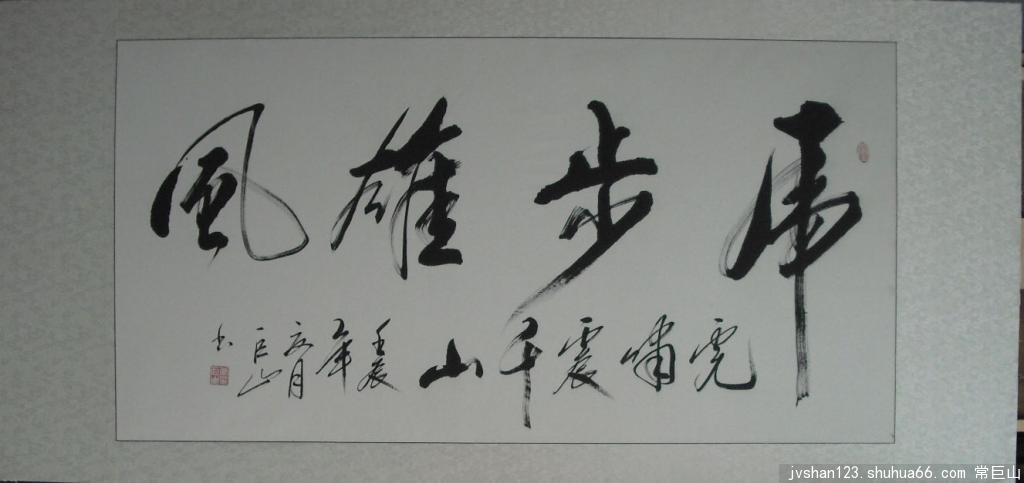 虎步雄風
虎嘯震千山
壬辰年亥月
巨山書
jvshan123.shuhua66.com 常巨山